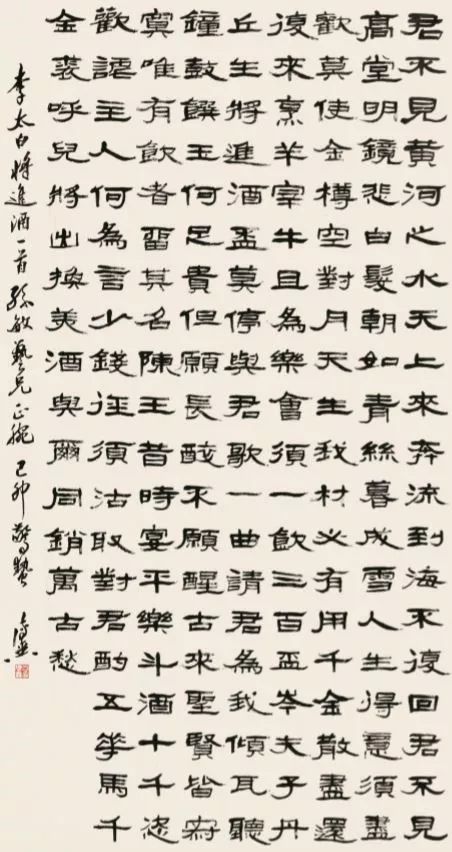 君不見黃河之水天上來奔流到海不復回君不見
高堂明鏡悲白髮朝如青絲暮成雪人生得意須盡
歡莫使金樽空對月天生我材必有用千金散盡還
復來烹羊宰牛且為樂會須一飲三百盃岑夫子丹
丘生將進酒盃莫停與君歌一曲請君為我傾耳聽
鐘鼓饌玉何足貴但願長醉不願醒古來聖賢皆寂
寞唯有飲者留其名陳王昔時宴平樂斗酒十千恣
歡謔主人何為言少錢徑須沽取對君酌五華馬千
金裘呼兒將出換美酒與爾同銷萬古愁
李太白將進酒一首 敏藝兄正腕 己卯驚蟄